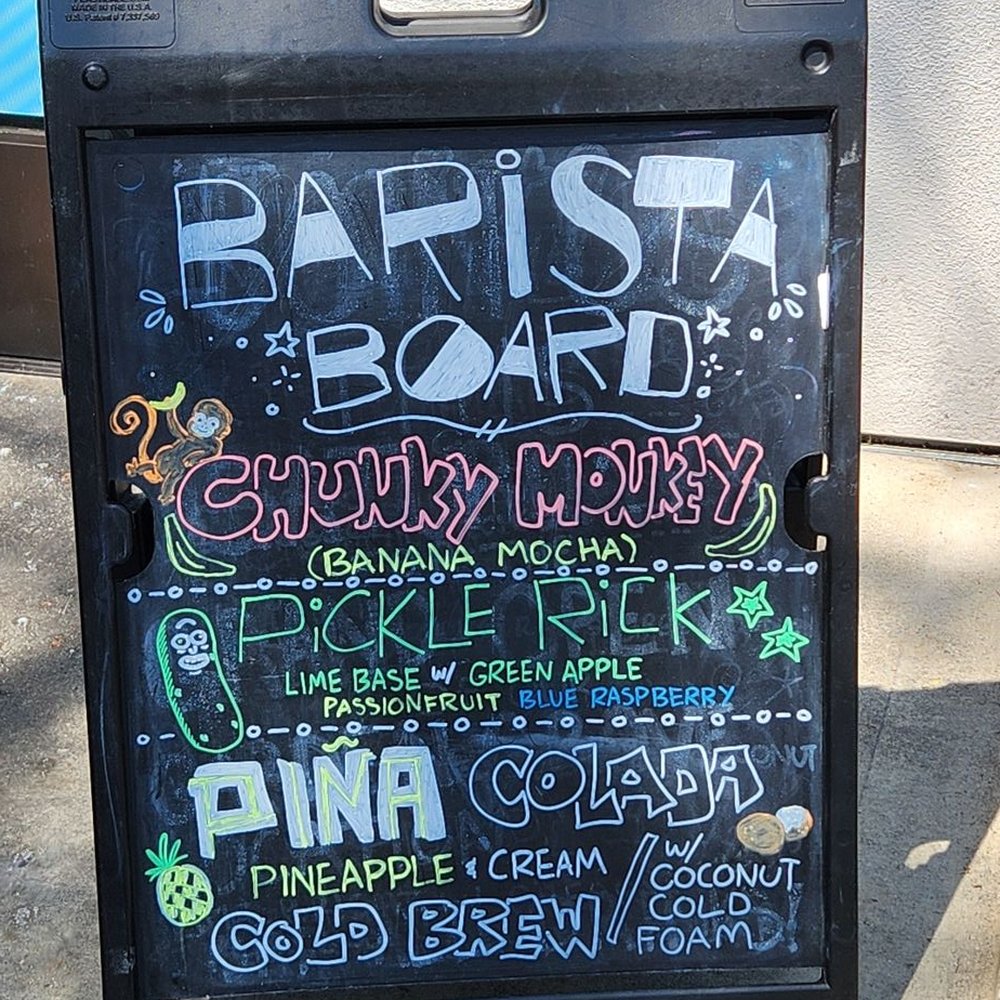 MADE IN THE U.S.A.
U.S. Patent # 7,337,560
BARiSTA
BOARD
CHUNKY MONKEY
(BANANA MOCHA)
PiCKLE RiCK
LIME BASE w/ GREEN APPLE
PASSIONFRUIT BLUE RASPBERRY
PIÑA COLADA
PINEAPPLE & CREAM
COLD BREW / w/
COCONUT
COLD
FOAM